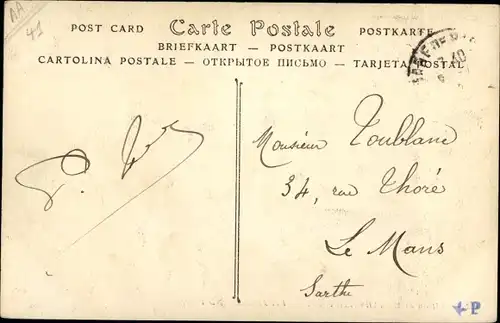 AA
41
POST CARD Carte Postale POSTKARTE
BRIEFKAART — POSTKAART
CARTOLINA POSTALE — ОТКРЫТОЕ ПИСЬМО — TARJETA POSTAL
Monsieur Toublanc
34, rue Thoré
Le Mans
Sarthe
P